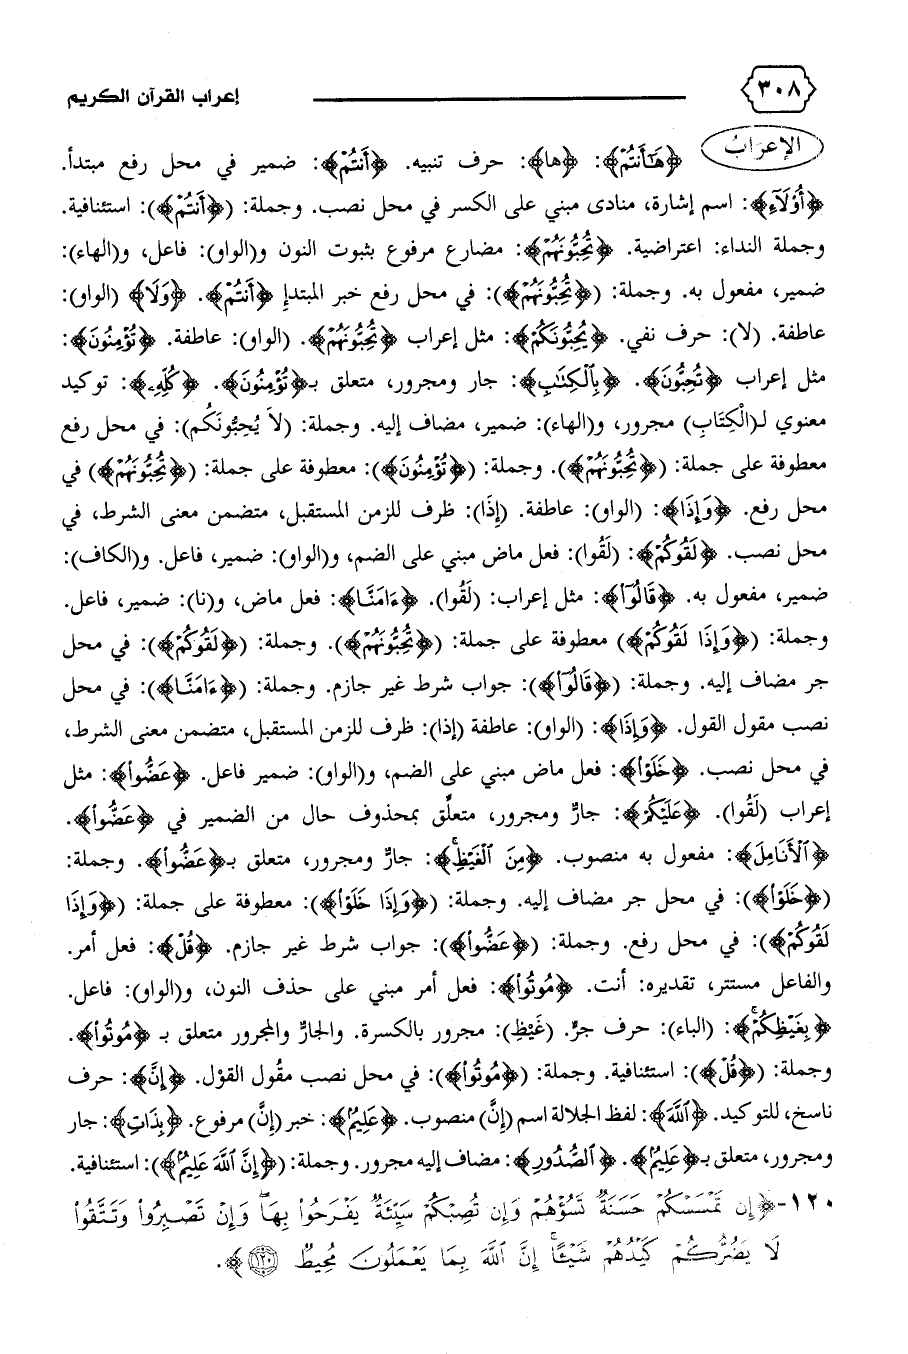 ٣٠٨ إعراب القرآن الكريم
الإعرَابُ ﴿هَٰٓأَنتُمْ﴾: ﴿ها﴾: حرف تنبيه. ﴿أَنتُمْ﴾: ضمير في محل رفع مبتدأ.
﴿أُوْلَآءِ﴾: اسم إشارة، منادى مبني على الكسر في محل نصب. وجملة: (﴿أَنتُمْ﴾): استئنافية.
وجملة النداء: اعتراضية. ﴿تُحِبُّونَهُمْ﴾: مضارع مرفوع بثبوت النون و(الواو): فاعل، و(الهاء):
ضمير، مفعول به. وجملة: (﴿تُحِبُّونَهُمْ﴾): في محل رفع خبر المبتدإ ﴿أَنتُمْ﴾. ﴿وَلَا﴾ (الواو):
عاطفة. (لا): حرف نفي. ﴿يُحِبُّونَكُمْ﴾: مثل إعراب ﴿تُحِبُّونَهُمْ﴾. (الواو): عاطفة. ﴿تُؤْمِنُونَ﴾:
مثل إعراب ﴿تُحِبُّونَ﴾. ﴿بِالْكِتَٰبِ﴾: جار ومجرور، متعلق بـ﴿تُؤْمِنُونَ﴾. ﴿كُلِّهِۦ﴾: توكيد
معنوي لـ(الْكِتَابِ) مجرور، و(الهاء): ضمير، مضاف إليه. وجملة: (لاَ يُحِبُّونَكُم): في محل رفع
معطوفة على جملة: (﴿تُحِبُّونَهُمْ﴾). وجملة: (﴿تُؤْمِنُونَ﴾): معطوفة على جملة: (﴿تُحِبُّونَهُمْ﴾) في
محل رفع. ﴿وَإِذَا﴾: (الواو): عاطفة. (إِذَا): ظرف للزمن المستقبل، متضمن معنى الشرط، في
محل نصب. ﴿لَقُوكُمْ﴾: (لَقُوا): فعل ماض مبني على الضم، و(الواو): ضمير، فاعل. و(الكاف):
ضمير، مفعول به. ﴿قَالُوٓا﴾: مثل إعراب: (لَقُوا). ﴿ءَامَنَّا﴾: فعل ماض، و(نا): ضمير، فاعل.
وجملة: (﴿وَإِذَا لَقُوكُمْ﴾) معطوفة على جملة: (﴿تُحِبُّونَهُمْ﴾). وجملة: (﴿لَقُوكُمْ﴾): في محل
جر مضاف إليه. وجملة: (﴿قَالُوٓا﴾): جواب شرط غير جازم. وجملة: (﴿ءَامَنَّا﴾): في محل
نصب مقول القول. ﴿وَإِذَا﴾: (الواو): عاطفة (إذا): ظرف للزمن المستقبل، متضمن معنى الشرط،
في محل نصب. ﴿خَلَوْا﴾: فعل ماض مبني على الضم، و(الواو): ضمير فاعل. ﴿عَضُّوا﴾: مثل
إعراب (لَقُوا). ﴿عَلَيْكُمُ﴾: جارٌّ ومجرور، متعلِّق بمحذوف حال من الضمير في ﴿عَضُّوا﴾.
﴿الْأَنَامِلَ﴾: مفعول به منصوب. ﴿مِنَ الْغَيْظِ﴾: جارٌّ ومجرور، متعلق بـ﴿عَضُّوا﴾. وجملة:
(﴿خَلَوْا﴾): في محل جر مضاف إليه. وجملة: (﴿وَإِذَا خَلَوْا﴾): معطوفة على جملة: (﴿وَإِذَا
لَقُوكُمْ﴾): في محل رفع. وجملة: (﴿عَضُّوا﴾): جواب شرط غير جازم. ﴿قُلْ﴾: فعل أمر.
والفاعل مستتر، تقديره: أنت. ﴿مُوتُوا﴾: فعل أمر مبني على حذف النون، و(الواو): فاعل.
﴿بِغَيْظِكُمْ﴾: (الباء): حرف جرٍّ. (غَيْظِ): مجرور بالكسرة. والجارّ والمجرور متعلق بـ ﴿مُوتُوا﴾.
وجملة: (﴿قُلْ﴾): استئنافية. وجملة: (﴿مُوتُوا﴾): في محل نصب مقُول القوْل. ﴿إِنَّ﴾: حرف
ناسخ، للتوكيد. ﴿اللَّهَ﴾: لفظ الجلالة اسم (إِنَّ) منصوب. ﴿عَلِيمٌ﴾: خبر (إِنَّ) مرفوع. ﴿بِذَاتِ﴾: جار
ومجرور، متعلق بـ﴿عَلِيمٌ﴾. ﴿الصُّدُورِ﴾: مضاف إليه مجرور. وجملة: (﴿إِنَّ اللَّهَ عَلِيمٌ﴾): استئنافية.
١٢٠-﴿إِن تَمْسَسْكُمْ حَسَنَةٌ تَسُؤْهُمْ وَإِن تُصِبْكُمْ سَيِّئَةٌ يَفْرَحُوا بِهَا وَإِن تَصْبِرُوا وَتَتَّقُوا
لَا يَضُرُّكُمْ كَيْدُهُمْ شَيْـًٔا إِنَّ اللَّهَ بِمَا يَعْمَلُونَ مُحِيطٌ ﴿١٢٠﴾﴾.